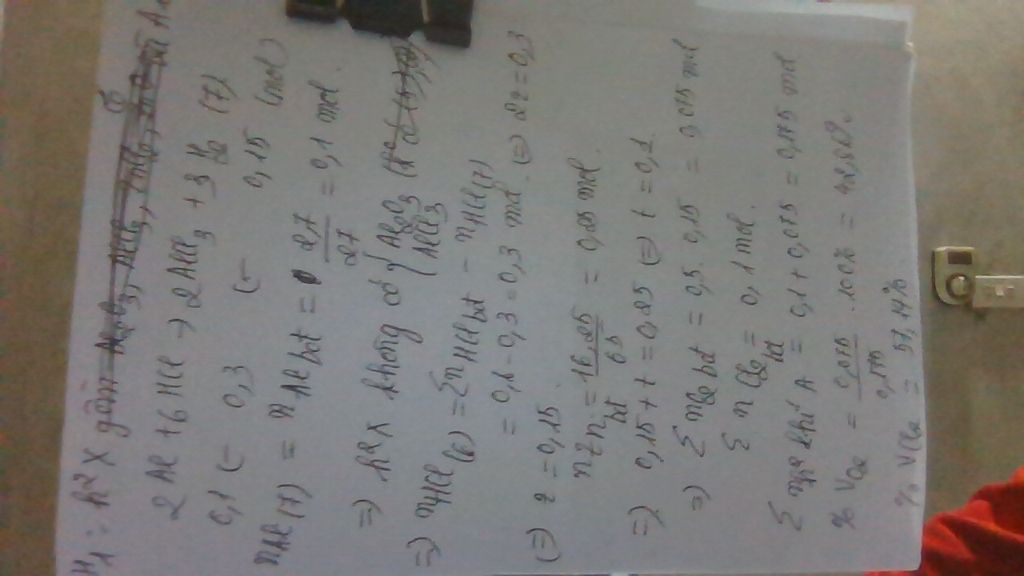 H₁ : h² X gồm Al₂O₃, AlCl₃, ZnCl₂,
2 Al + 6 HCl → 2 AlCl₃ + 3 H₂ (7)
0,1 ← 0,3 ← 0,15 (mol)
nAl (7) = nAl bđt = 2,7/27 = 0,1 mol.
=) h² X không có { Al₂O₃ AlCl₃
=) nHCl (6) = Σ nHCl bđt - nHCl (7)
= 0,6 - 0,3 = 0,3 mol. (=) 2z = 0,3
(=) z = 0,15
nZn bđt = 16,25/65 = 0,25 mol.
=) 0,15 + t = 0,25 (=) t = 0,1.
=) Σ nO₂ bđt = 0,5. 0,15 = 0,075 mol
Σ nCl₂ bđt = 0,1 mol.
Σ nhh khí A = 0,1 + 0,075 = 0,175 mol
% VO₂ = 0,075/0,175 .100% = 42,86%
% VCl₂ = 57,14%